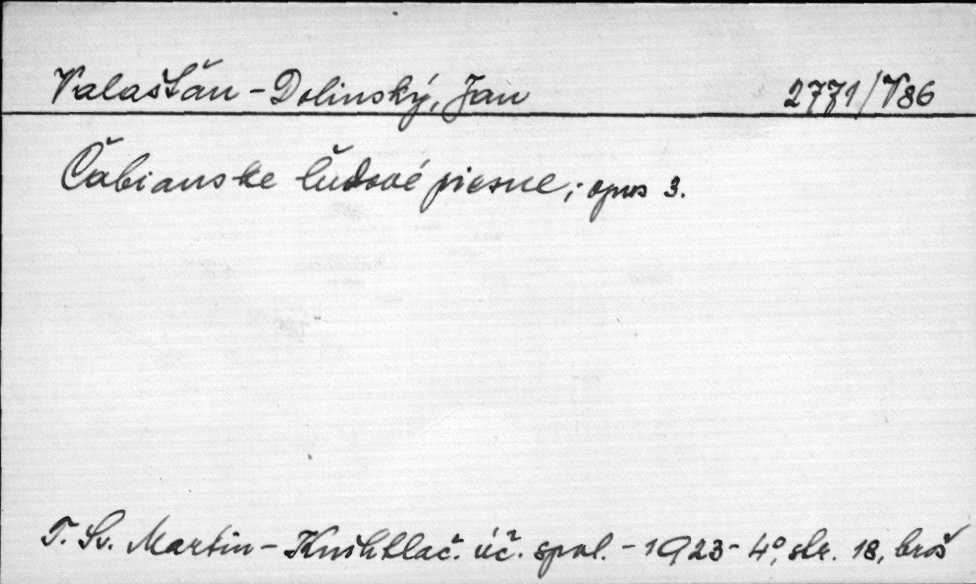 Valašťán - Dolinský, Jan 2771/V86
Čabianske ľudové piesne; opus 3.
T. Sv. Martin - Knihtlač. úč. spol. - 1923 - 4°, str. 18, broš